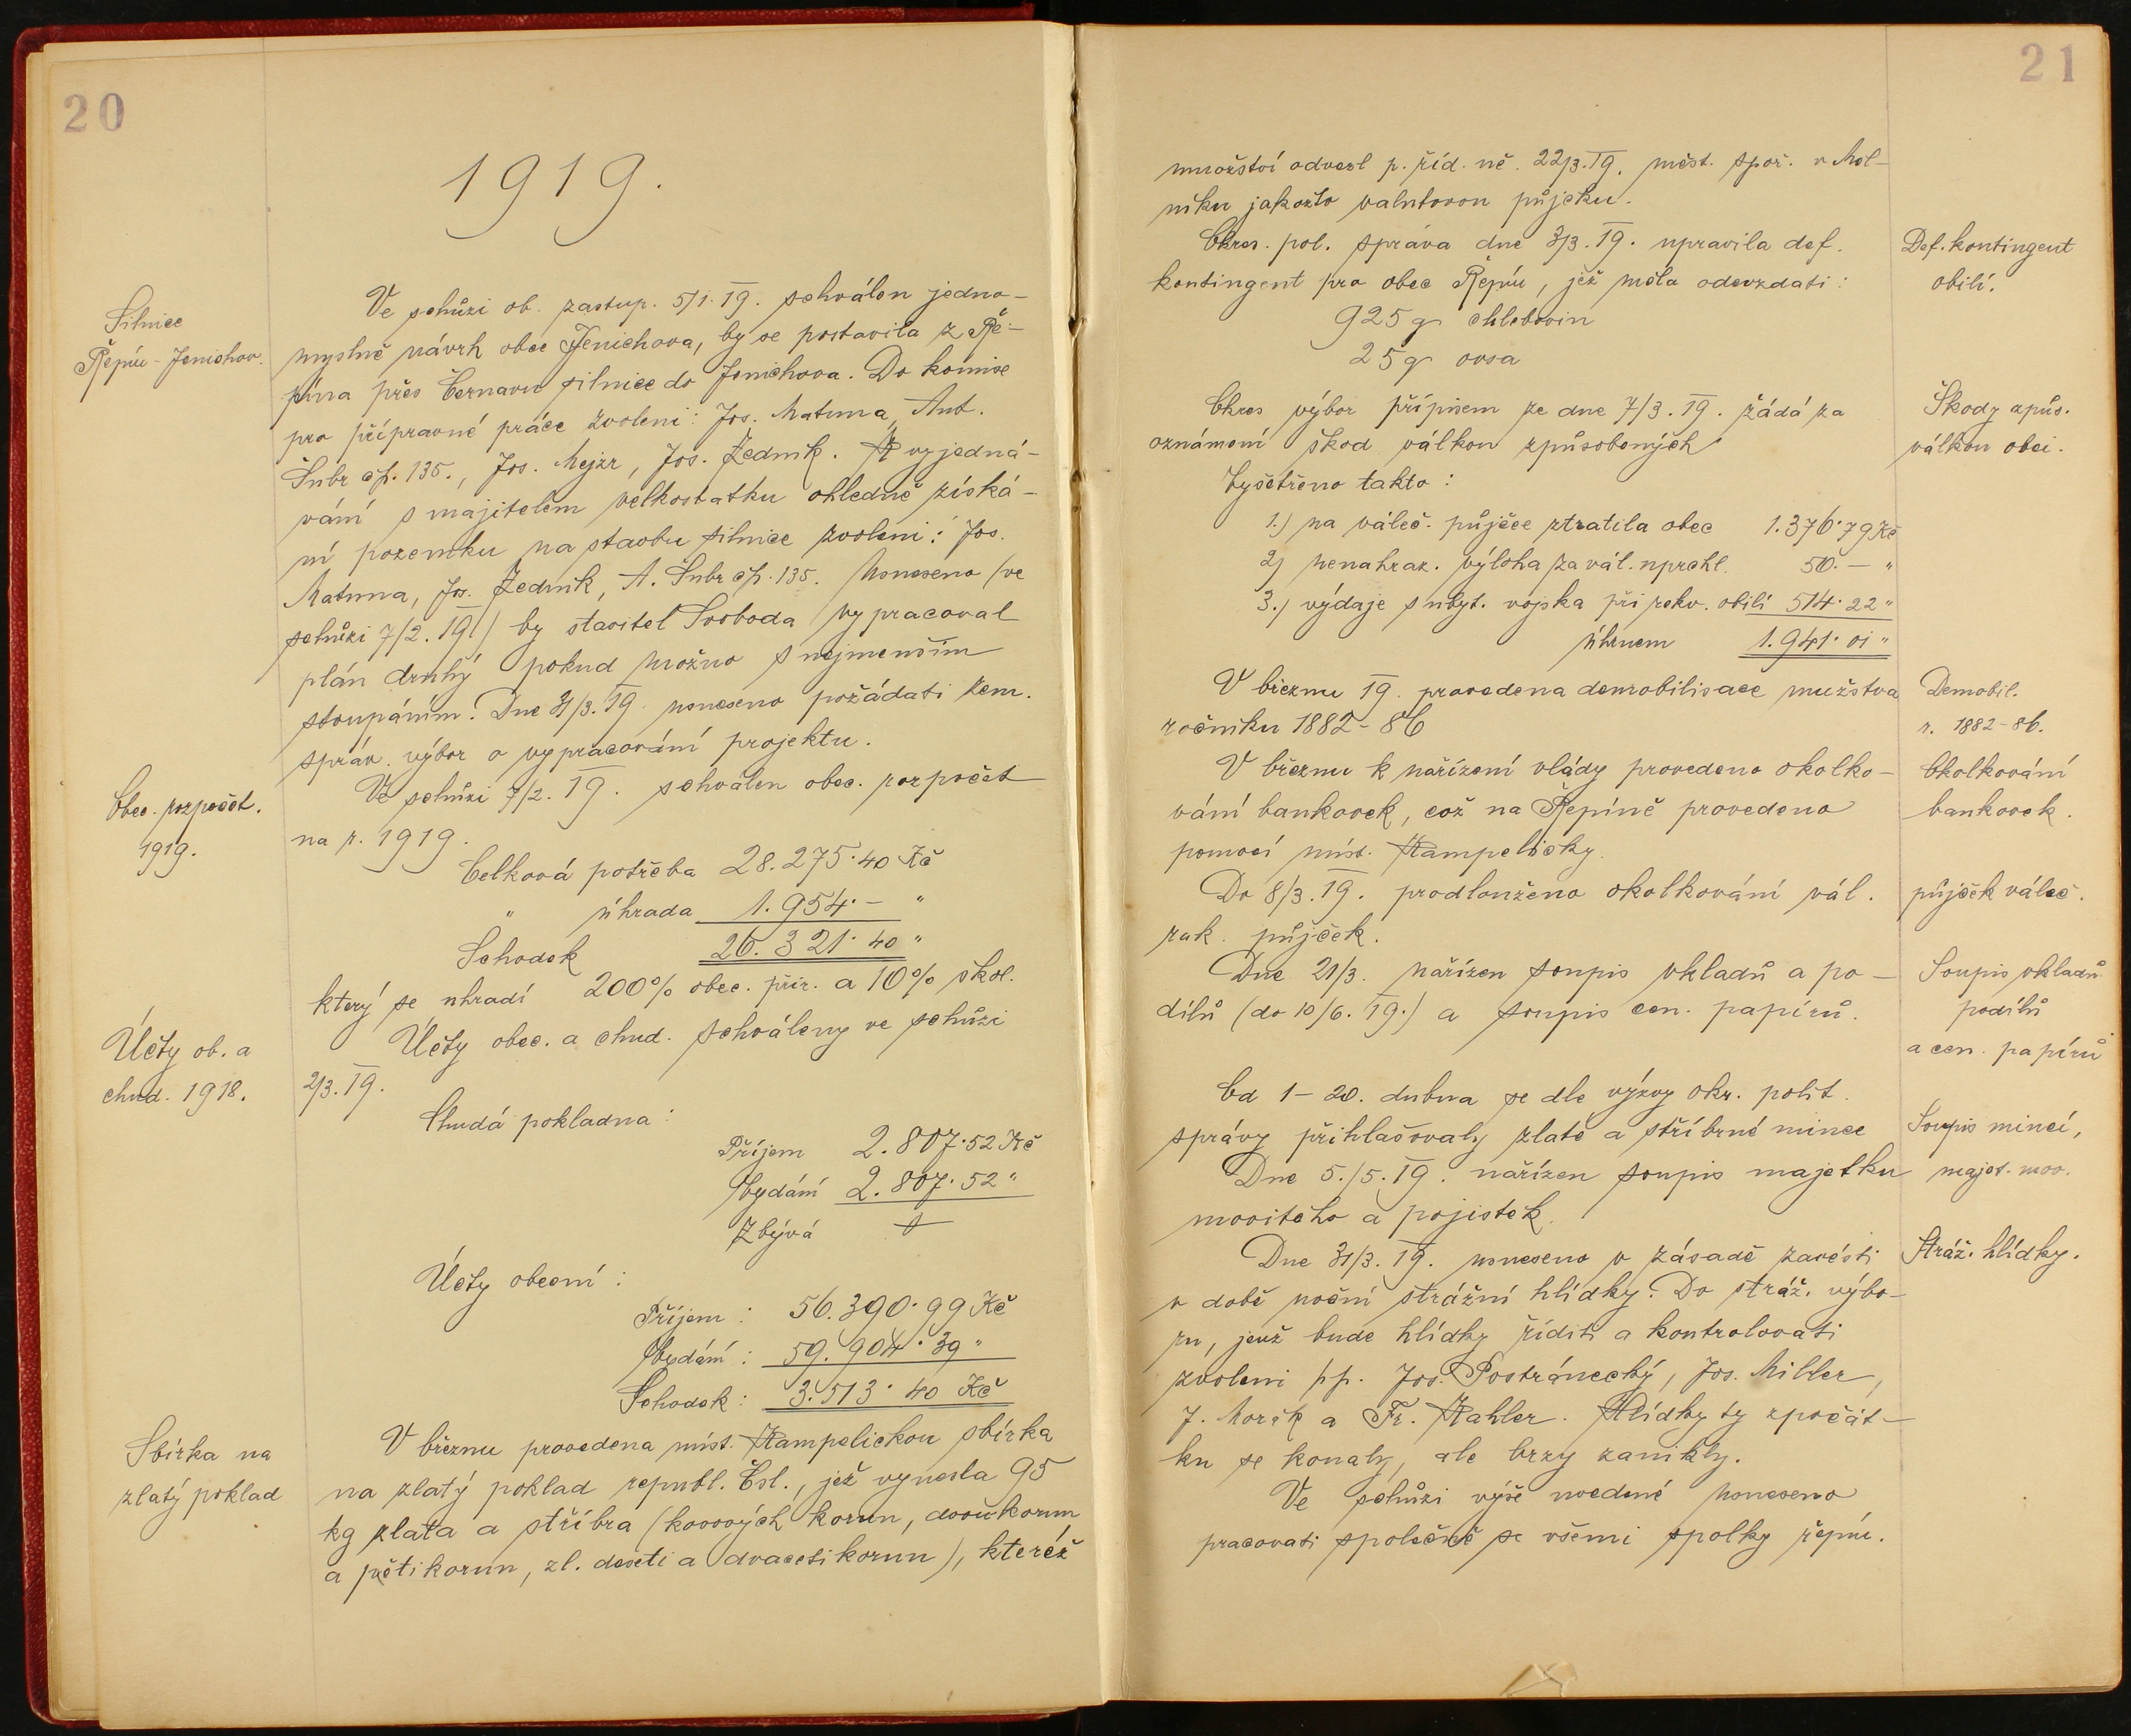 20
1919.
Silnice
Řepín-Jenichov.
Ve schůzi ob. zastup. 5/1. 19. schválen jedno-
myslně návrh obce Jenichova, by se postavila z Ře-
pína přes Černavu silnice do Jenichova. Do komise
pro přípravné práce zvoleni: Jos. Matuna, Ant.
Šubr čp. 135., Jos. Mejzr, Jos. Žedník. K vyjedná-
vání s majitelem velkostatku ohledně získá-
ní pozemku na stavbu silnice zvoleni: Jos.
Matuna, Jos. Žedník, A. Šubr čp. 135. Usneseno (ve
schůzi 7/2. 19.) by stavitel Svoboda vypracoval
plán druhý pokud možno s nejmenším
stoupáním. Dne 31/3. 19. usneseno požádati zem.
správ. výbor o vypracování projektu.
Obec. rozpočet.
1919.
Ve schůzi 7/2. 19. schválen obec. rozpočet
na r. 1919.
Celková potřeba 28.275·40 Kč
" úhrada 1.954·— "
Schodek 26.321·40 "
který se uhradí 200% obec. přir. a 10% škol.
Účty ob. a
chud. 1918.
Účty obec. a chud. schváleny ve schůzi
2/3. 19.
Chudá pokladna:
Příjem 2.807·52 Kč
Vydání 2.807·52 "
Zbývá
Účty obecní:
Příjem: 56.390·99 Kč
Vydání: 59.904·39 "
Schodek: 3.513·40 Kč
Sbírka na
zlatý poklad
V březnu provedena míst. Kampelickou sbírka
na zlatý poklad republ. Čsl., jež vynesla 95
kg zlata a stříbra (kovových korun, dvoukorun
a pětikorun, zl. deseti a dvacetikorun), kteréž
21
množství odvezl p. říd. uč. 22/3. 19. měst. spoř. v Měl-
níku jakožto valutovou půjčku.
Okres. pol. správa dne 3/3. 19. upravila def.
kontingent pro obec Řepín, jež měla odevzdati:
925 q chlebovin
25 q ovsa
Def. kontingent
obilí.
Okres výbor přípisem ze dne 7/3. 19. žádá za
oznámení škod válkou způsobených
Vyšetřeno takto:
Škody způs.
válkou obci.
1.) na váleč. půjčce ztratila obec 1.376·79 Kč
2) nenahraz. výloha za vál. uprchl. 50.— "
3.) výdaje s ubyt. vojska při rekv. obilí 514·22 "
úhrnem 1.941·01 "
V březnu 19. provedena demobilisace mužstva
ročníku 1882-86
Demobil.
r. 1882-86.
V březnu k nařízení vlády provedeno okolko-
vání bankovek, což na Řepíně provedeno
pomocí míst. Kampeličky.
Okolkování
bankovek.
Do 8/3. 19. prodlouženo okolkování vál.
rak. půjček.
půjček váleč.
Dne 21/3. nařízen soupis vkladů a po-
dílů (do 10/6. 19.) a soupis cen. papírů.
Soupis vkladů
podílů
a cen. papírů
Od 1-20. dubna se dle výzvy okr. polit.
správy přihlašovaly zlaté a stříbrné mince
Dne 5./5. 19. nařízen soupis majetku
movitého a pojistek.
Soupis mincí,
majet. mov.
Dne 31/3. 19. usneseno v zásadě zavésti
v době noční strážní hlídky. Do stráž. výbo-
ru, jenž bude hlídky říditi a kontrolovati
zvoleni pp. Jos. Postránecký, Jos. Miller,
J. Morák a Fr. Kahler. Hlídky ty zpočát-
ku se konaly, ale brzy zanikly.
Stráž. hlídky.
Ve schůzi výše uvedené usneseno
pracovati společně se všemi spolky řepín.